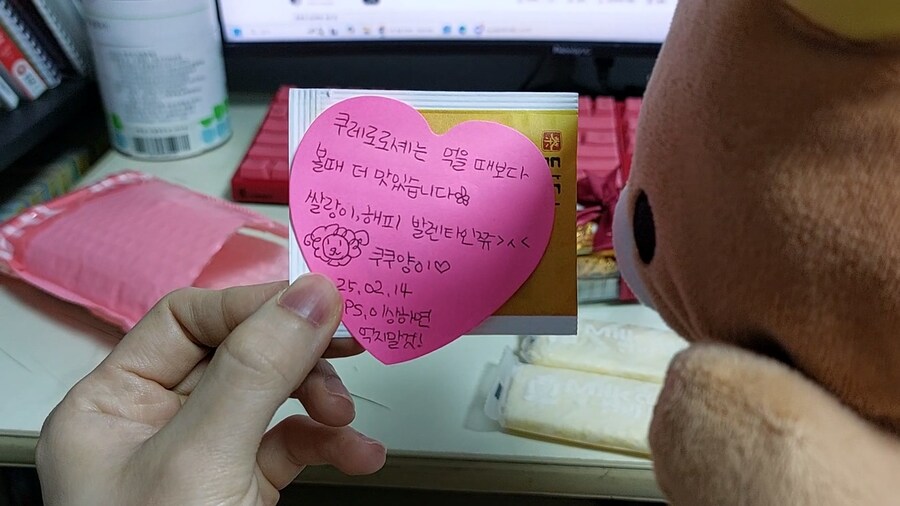 쿠레로로셰는 먹을 때보다
볼때 더 맛있습니다
쌀랑이, 해피 발렌타인쮸>ㅅ<
쿠쿠양이♡
25.02.14
PS. 이상하면
먹지말것!